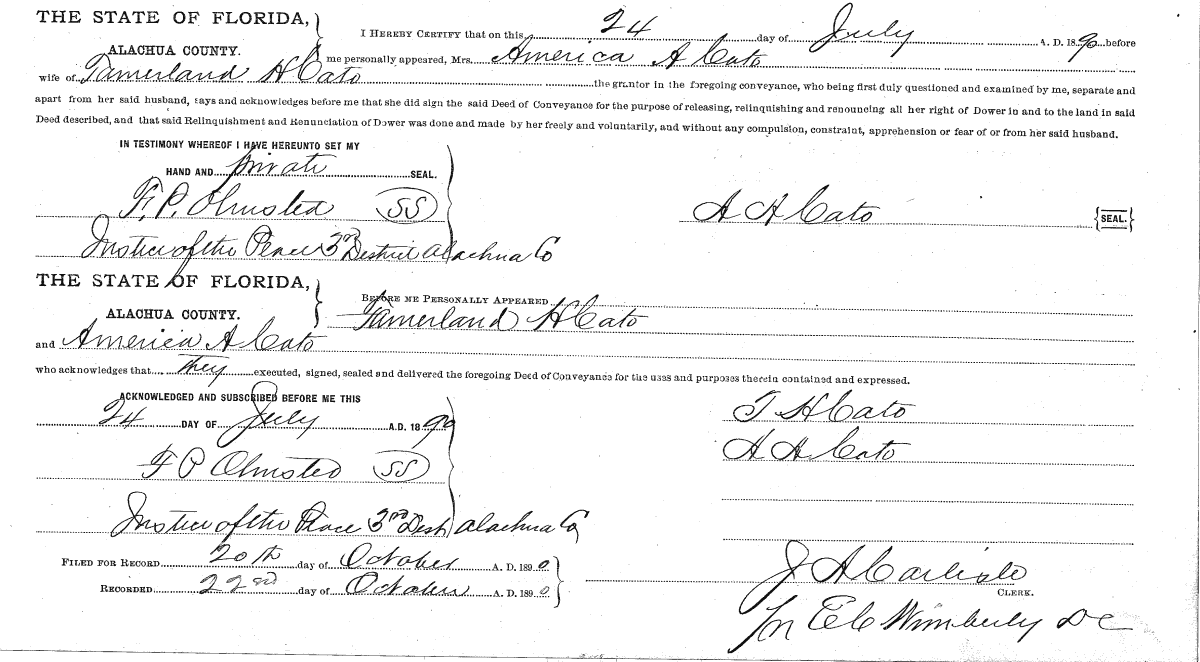 THE STATE OF FLORIDA,
ALACHUA COUNTY.
I HEREBY CERTIFY that on this 24 day of July A. D. 1890 before
me personally appeared, Mrs. America A Cato
wife of Tamerland H Cato the grantor in the foregoing conveyance, who being first duly questioned and examined by me, separate and
apart from her said husband, says and acknowledges before me that she did sign the said Deed of Conveyance for the purpose of releasing, relinquishing and renouncing all her right of Dower in and to the land in said
Deed described, and that said Relinquishment and Renunciation of Dower was done and made by her freely and voluntarily, and without any compulsion, constraint, apprehension or fear of or from her said husband.
IN TESTIMONY WHEREOF I HAVE HEREUNTO SET MY
HAND AND private SEAL.
F. P. Olmsted SS
A A Cato {SEAL.}
Justice of the Peace 3rd District Alachua Co
THE STATE OF FLORIDA,
ALACHUA COUNTY.
BEFORE ME PERSONALLY APPEARED
Tamerland H Cato
and America A Cato
who acknowledges that they executed, signed, sealed and delivered the foregoing Deed of Conveyance for the uses and purposes therein contained and expressed.
ACKNOWLEDGED AND SUBSCRIBED BEFORE ME THIS
24 DAY OF July A.D. 1890
T H Cato
A A Cato
F P Olmsted SS
Justice of the Peace 3rd Dist Alachua Co
FILED FOR RECORD 20th day of October A. D. 1890
RECORDED 22nd day of October A. D. 1890
J A Carlisle
CLERK.
E C Wimberly DC